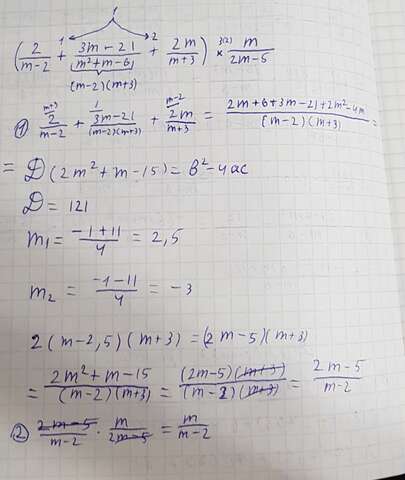 1
1 2 3(2)
(2/(m-2) + (3m-21)/(m²+m-6) + 2m/(m+3)) × m/(2m-5)
(m-2)(m+3)
① 2/(m-2) ^(m+3) + (3m-21)/((m-2)(m+3)) ^1 + 2m/(m+3) ^(m-2) = (2m+6+3m-21+2m²-4m)/((m-2)(m+3)) =
= D(2m²+m-15) = b²-4ac
D = 121
m₁ = (-1+11)/4 = 2,5
m₂ = (-1-11)/4 = -3
2(m-2,5)(m+3) = (2m-5)(m+3)
= (2m²+m-15)/((m-2)(m+3)) = ((2m-5)(m+3))/((m-2)(m+3)) = (2m-5)/(m-2)
② (2m-5)/(m-2) · m/(2m-5) = m/(m-2)